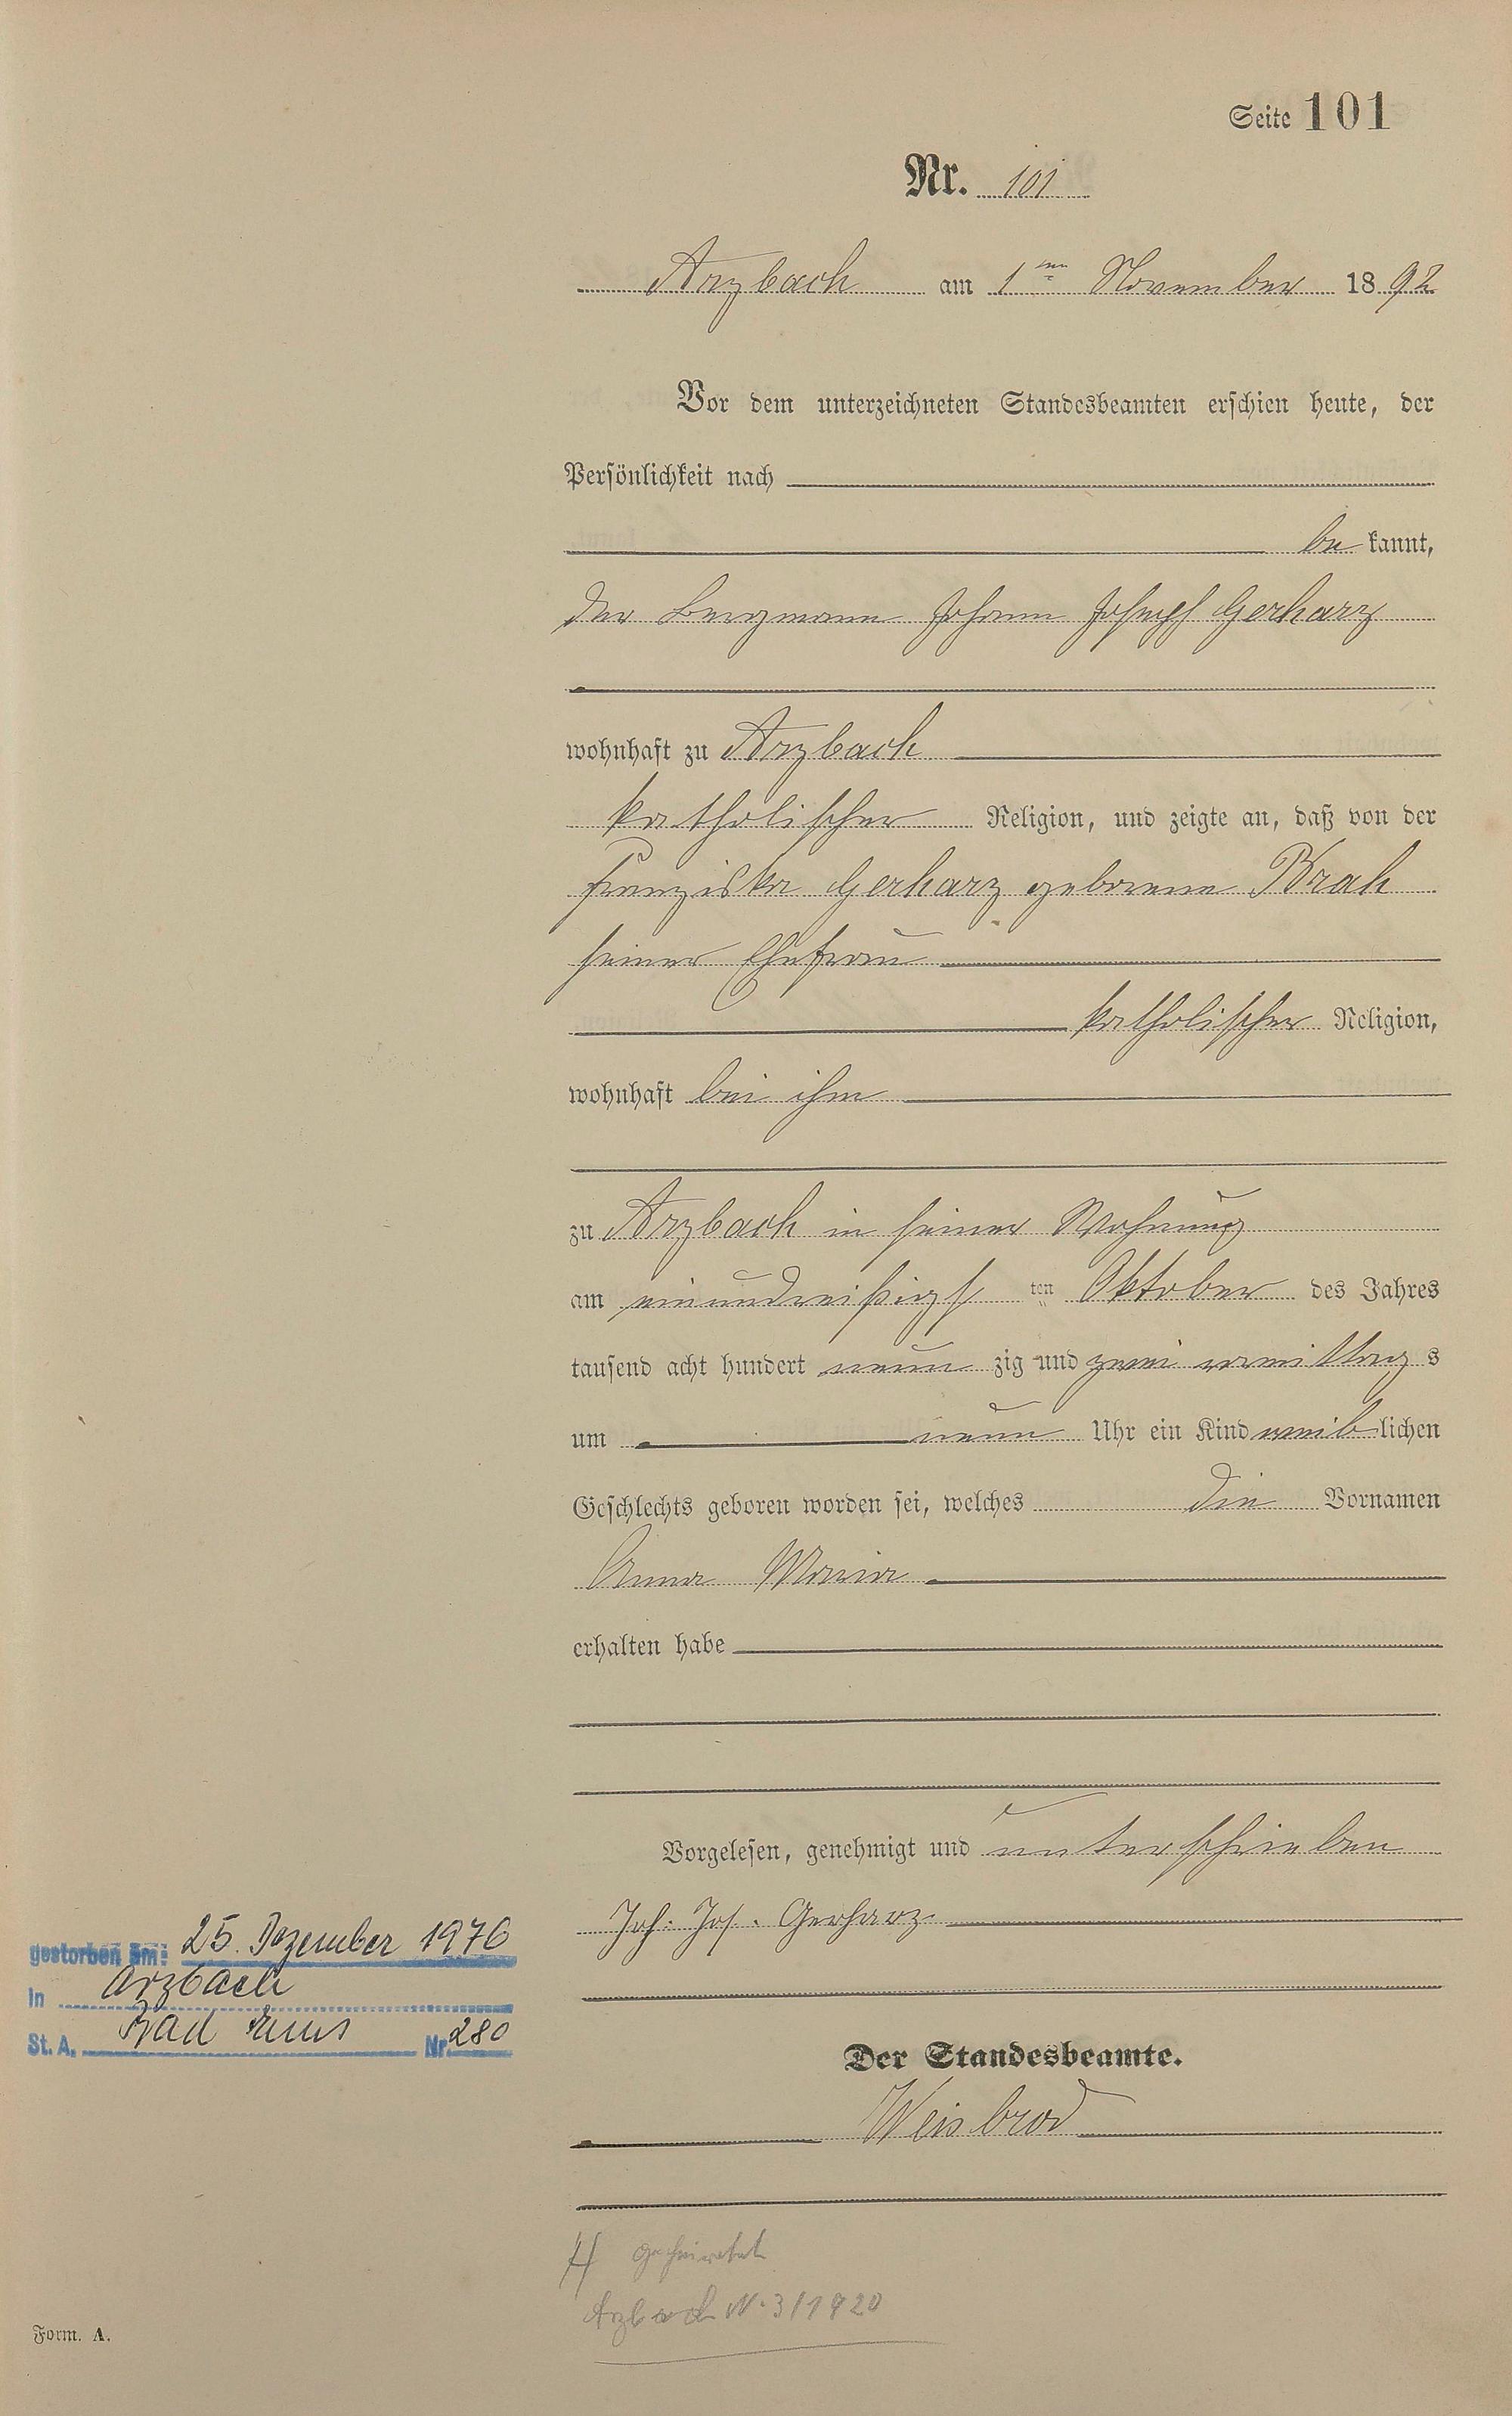 Seite 101
Nr. 101
Arzbach am 1ten November 1892
Vor dem unterzeichneten Standesbeamten erschien heute, der
Persönlichkeit nach
bekannt,
der Bergmann Johann Joseph Gerharz
wohnhaft zu Arzbach
katholischer Religion, und zeigte an, daß von der
Franziska Gerharz geborene Brah
seiner Ehefrau
katholischer Religion,
wohnhaft bei ihm
zu Arzbach in seiner Wohnung
am einundreißigsten Oktober des Jahres
tausend acht hundert neunzig und zwei vormittags
um neun Uhr ein Kind weiblichen
Geschlechts geboren worden sei, welches die Vornamen
Anna Maria
erhalten habe
Vorgelesen, genehmigt und unterschrieben
Joh. Jos. Gerharz
gestorben am: 25. Dezember 1976
in Arzbach
St. A. Bad Ems Nr. 280
Der Standesbeamte.
Weisbrod
geheiratet
Arzbach N. 3/1920
Form. A.